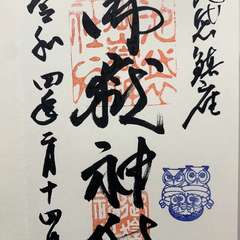 池袋鎮座
御嶽神社
令和四年二月十四日